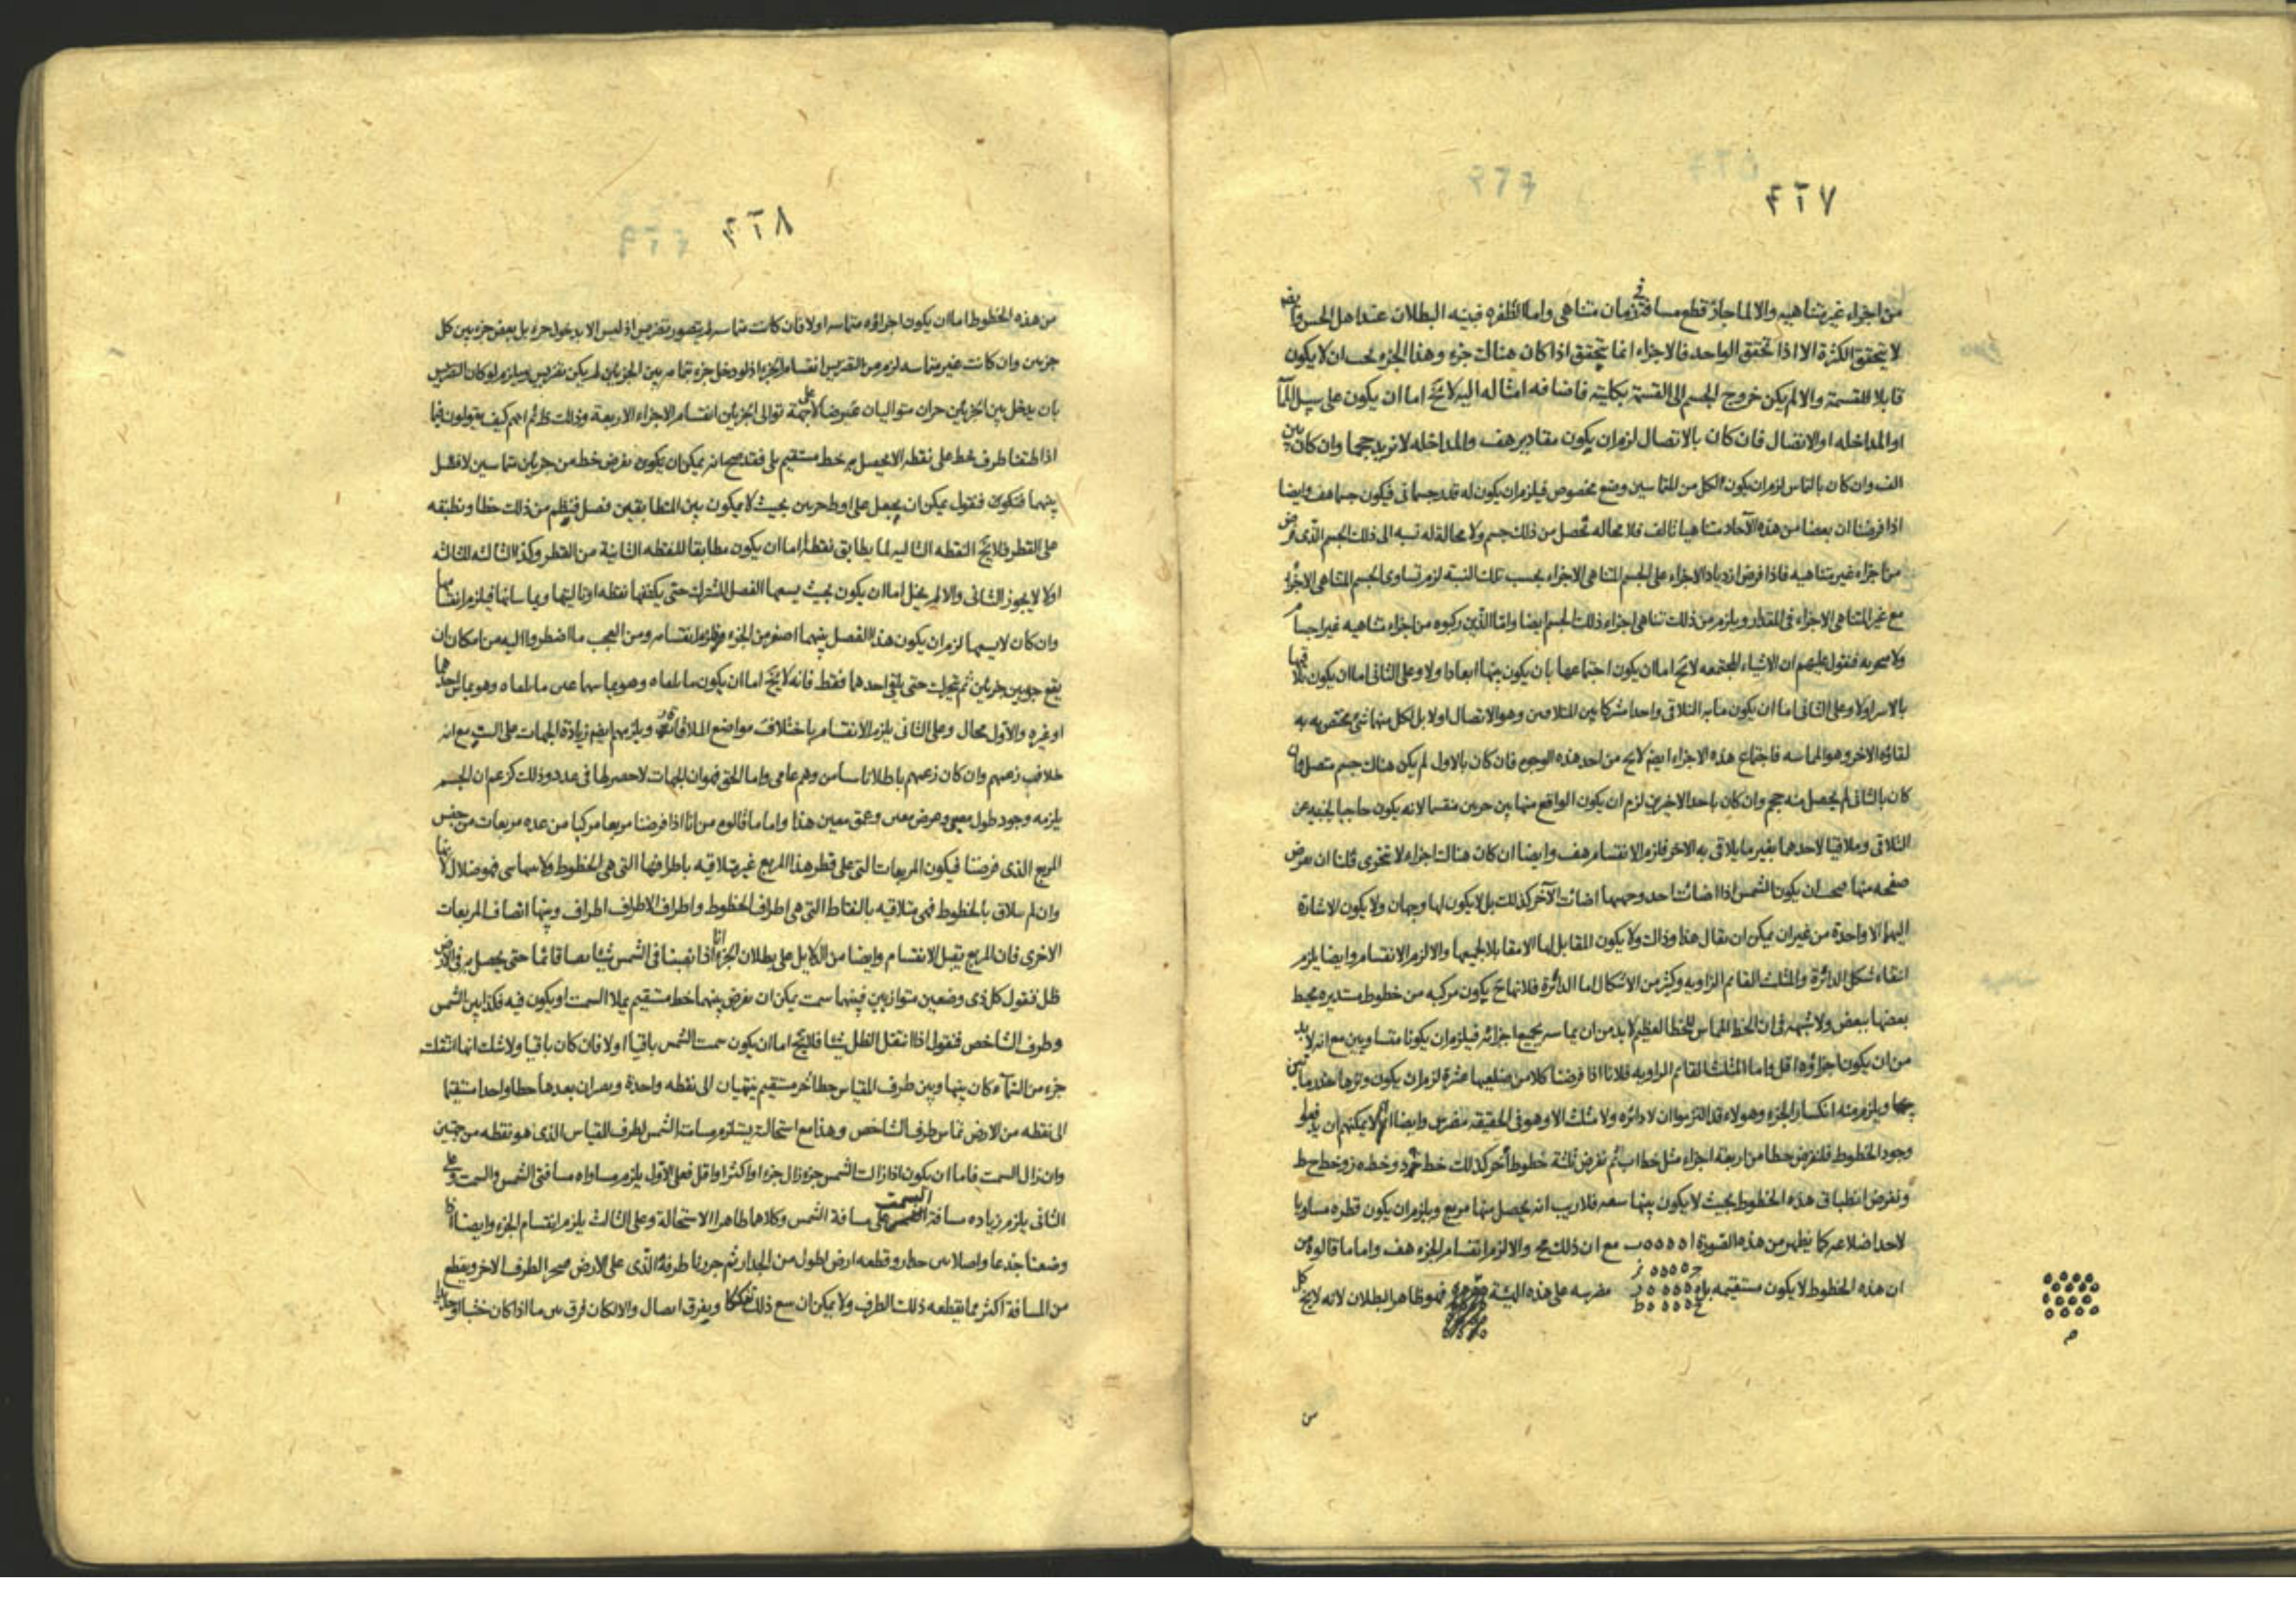 ٤٢٧
من اجزاء غير متناهيه والا لما جاز قطع مسافة فى زمان متناهى واما الطفره فبينه البطلان عند اهل الحس وايضا
لا يتحقق الكثرة الا اذا تحقق الواحد فالاجزاء انما يتحقق اذا كان هناك جزء وهذا الجزء يجب ان لا يكون
قابلا للقسمة والا لم يكن خروج الجسم الى القسمة بكليته فاضافه امثاله اليه لا يخ اما ان يكون على سبيل
او المداخله او الاتصال فان كان بالاتصال لزم ان يكون مقادير هف والمداخله لا تزيد حجما وان كان
الف وان كان بالتماس لزم ان يكون لكل من المتماسين وضع مخصوص فيلزم ان يكون له قدر جسمانى فيكون جسما هف وايضا
اذا فرضنا ان بعضا من هذه الآحاد متناهيا تالف فلا محاله تحصل من ذلك جسم ولا محالة له نسبه الى ذلك الجسم الذى فرض
من اجزاء غير متناهيه فاذا فرض ازدياد الاجزاء على الجسم المتناهى الاجزاء بحسب تلك النسبة لزم تساوى الجسم المتناهى الاجزاء
مع غير المتناهى الاجزاء فى المقدار ويلزم من ذلك تناهى اجزاء ذلك الجسم ايضا واما الذين ركبوه من اجزاء متناهيه غير اجسام
ولا متجزيه فنقول عليهم ان الاشياء المجتمعه لا يخ اما ان يكون اجتماعها بان يكون بينها ابعاد اولا وعلى الثانى اما ان يكون تلاقيها
بالاسر اولا وعلى الثانى اما ان يكون ما به التلاقى واحدا مشتركا بين المتلاقيين وهو الاتصال اولا بل لكل منهما شئ يختص به به
لقاؤه الاخر وهو المماسه فاجتماع هذه الاجزاء ايضا لا يخ من احد هذه الوجوه فان كان بالاول لم يكن هناك جسم متصل وان
كان بالثانى لم يحصل منه حجم وان كان باحد الاخيرين لزم ان يكون الواقع منها بين جزئين منقسما لانه يكون حاجبا لجنبيه عن
التلاقى وملاقيا لاحدهما بغير ما يلاقى به الاخر فلزم الانقسام هف وايضا ان كان هنالك اجزاء لا تتجزى فلنا ان نفرض
صفحه منها فيجب ان يكون الشمس اذا اضائت احد وجهيها اضائت الآخر كذلك بل لا يكون لها وجهان ولا يكون الاشارة
اليها الا واحدة من غير ان يمكن ان يقال هذا وذاك ولا يكون المقابل لها الا مقابلا لجميعها والا لزم الانقسام وايضا يلزم
انتفاء شكل الدائرة والمثلث القائم الزاويه وكثير من الاشكال اما الدائرة فلانها ح يكون مركبه من خطوط مستديره محيط
بعضها ببعض ولا شبهه فى ان الخط المماس للخط العظيم لا بد من ان يماسه بجميع اجزائه فيلزم ان يكونا متساويين مع انه لا بد
من ان يكون اجزاؤه اقل واما المثلث القائم الزاويه فلانا اذا فرضنا كلا من ضلعيها عشرة لزم ان يكون وترها جذر مائتين
ويلزم منه انكسار الجزء وهولاء قد التزموا ان لا دائره ولا مثلث الا وهو فى الحقيقه مضرس وايضا لا يمكنهم ان يدفعوا
وجود الخطوط فلنفرض خطا من اربعة اجزاء مثل خط اب ثم نفرض ثلثة خطوط أخر كذلك خط ج د وخط ه ز وخط ح ط
ونفرض انطباق هذه الخطوط بحيث لا يكون بينها سعه فلا ريب انه يحصل منها مربع ويلزم ان يكون قطره مساويا
لاحد اضلاعه كما يظهر من هذه الصورة ا ٥٥٥٥ ب مع ان ذلك مح والا لزم انقسام الجزء هف واما ما قالوه من
ان هذه الخطوط لا يكون مستقيمه بل مضرسه على هذه الهيئة فهو ظاهر البطلان لانه لا يخ كل
من
٤٢٨
من هذه الخطوط اما ان يكون اجزاؤه متماسه اولا فان كانت متماسه لم يتصور تضريس اذ ليس الا بدخول جزء بل بعض جزء بين كل
جزئين وان كانت غير متماسه لزم من التضريس انقسام الجزء اذ لو دخل جزء تمامه بين الجزئين لم يكن تضريس ويلزم لو كان التضريس
بان يدخل بين الجزئين جزان متواليان عرضا لا على جهة توالى الجزئين انقسام الاجزاء الاربعة وذلك ظ ثم انهم كيف يقولون انا
اذا طبقنا طرف خط على نقطه لا يحصل به خط مستقيم بلى فقد صح انه يمكن ان يكون نفرض خطه من جزئين متماسين لا فصل
بينهما فنكون فنقول يمكن ان يجعل على اوطحربين بحيث لا يكون بين المتطابقين فصل فينظم من ذلك خطا ونطبقه
على القطر فلا يخ النقطه التاليه لما يطابق نقطة اما ان يكون مطابقا للنقطه الثانية من القطر وكذا الثالثه للثالثه
اولا لا يجوز الثانى والا لم يخل اما ان يكون بحيث يسعها الفصل المشترك حتى يكتنفها نقطه او تاليتها ويماسانها فيلزم انقسامها
وان كان لا يسعها لزم ان يكون هذا الفصل بينهما اصغر من الجزء ويلزم انقسامه ومن العجب ما اضطروا اليه من امكان ان
يقع جزء بين جزئين ثم تحرك حتى يلقى احدهما فقط فانه لا يخ اما ان يكون ما يلقاه وهو يماسهما عين ما يلقاه وهو يماس احدهما
او غيره والاول محال وعلى الثانى يلزم الانقسام باختلاف مواضع الملاقاة ويلزمهم ايضا زيادة الجهات على الست مع انه
خلاف زعمهم وان كان زعمهم باطلا ناشيا من وهم عامى واما الحق فهو ان الجهات لا حصر لها فى عدد وذلك كزعم ان الجسم
يلزمه وجود طول معين وعرض معين وعمق معين هذا واما ما قالوه من انا اذا فرضنا مربعا مركبا من عده مربعات من جنس
المربع الذى فرضنا فيكون المربعات التى على قطر هذا المربع غير متلاقيه باطرافها التى هى الخطوط ولا يتماسى فهو ضلال لانها
وان لم تتلاق بالخطوط فهى متلاقيه بالنقاط التى هى اطراف الخطوط واطراف الاطراف اطراف وبينها انصاف المربعات
الاخرى فان المربع يقبل الانقسام وايضا من الدلايل على بطلان الجزء انا اذا نصبنا فى الشمس شيئا نصبا قائما حتى يحصل به فى الارض
ظل فنقول كل ذى وضعين متوازيين فبينهما سمت يمكن ان نفرض بينهما خط مستقيم يملا السمت او يكون فيه فكذا بين الشمس
وطرف الشاخص فنقول اذا انتقل الظل شيئا فلا يخ اما ان يكون سمت الشمس باقيا اولا فان كان باقيا ولا شك انها انتقلت
جزء من السماء كان بينها وبين طرف المقياس خط آخر مستقيم ينتهيان الى نقطه واحدة ويصيران بعدها خطا واحدا مستقيما
الى نقطه من الارض تماس طرف الشاخص وهذا مع استحالته يستلزم مسامتة الشمس لطرف المقياس الذى هو نقطه من جهتين
وان زال السمت فاما ان يكون اذا زالت الشمس جزء زال جزء او اكثر او اقل فعلى الاول يلزم مساواه مسافتى الشمس والسمت وعلى
الثانى يلزم زياده مسافة السمت على مسافة الشمس وكلاهما ظاهرا الاستحالة وعلى الثالث يلزم انقسام الجزء وايضا اذا
وضعنا جذعا واصلا بين جدار وقطعه ارض اطول من الجدار ثم جررنا طرفه الذى على الارض فيجر الطرف الاخر ويقطع
من المسافة اكثر مما يقطعه ذلك الطرف ولا يمكن ان مع ذلك تفككا وتفرق اتصال والا لكان فرق بين ما اذا كان خشبا او